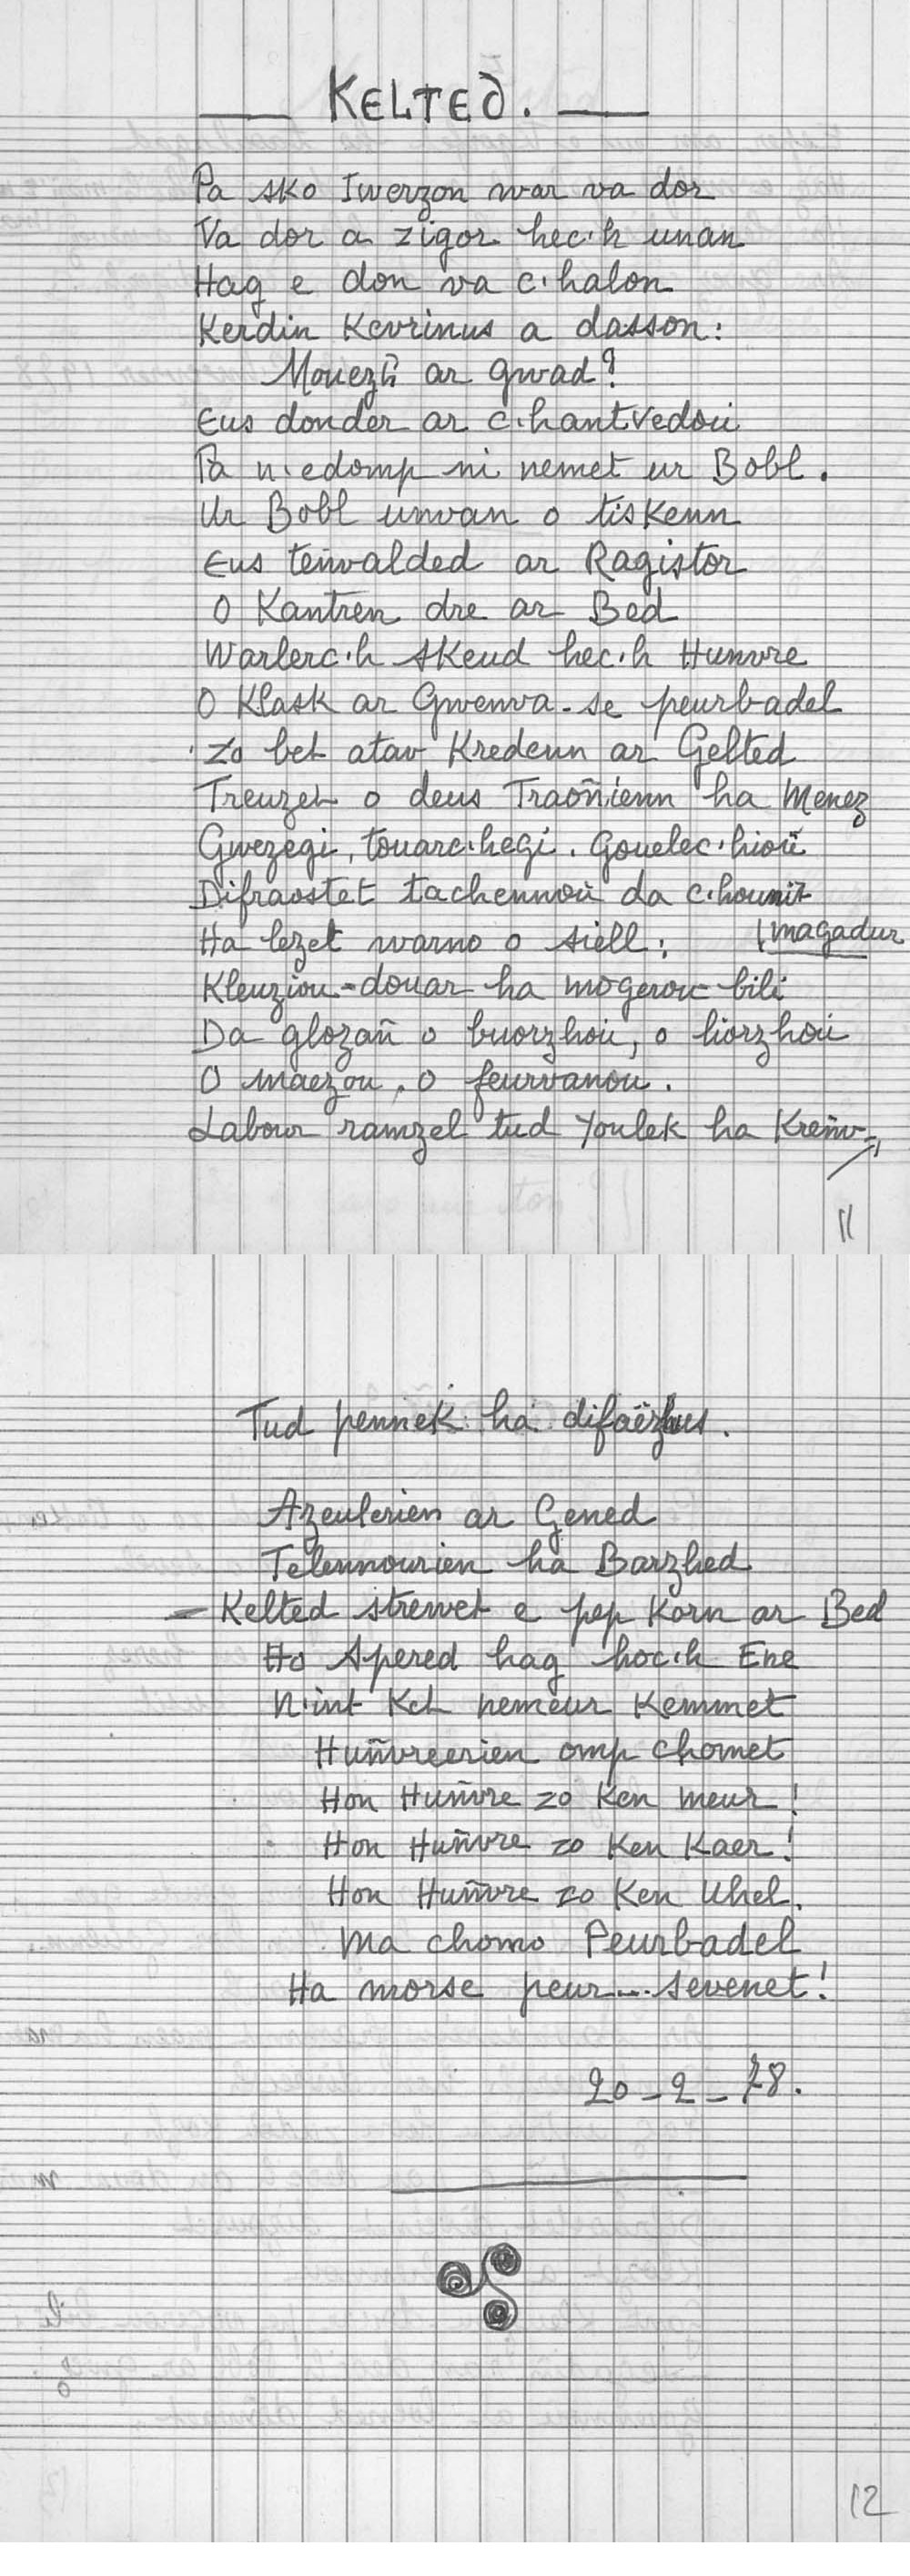 KELTED.
Pa sko Iwerzon war va dor
Va dor a zigor hec'h unan
Hag e don va c'halon
Kerdin Kevrinus a dasson:
Mouezh ar gwad?
Eus donder ar c'hantvedoù
Pa n'edomp ni nemet ur Bobl.
Ur Bobl unvan o tiskenn
Eus teñvalded ar Ragistor
O Kantren dre ar Bed
Warlerc'h skeud hec'h Hunvre
O Klask ar Gwenva-se peurbadel
Zo bet atav Kredenn ar Gelted
Treuzet o deus Traoñienn ha Menez
Gwezegi, touarc'hegi. Gouelec'hioù
Difraostet tachennoù da c'hounit
magadur
Ha lezet warno o siell:
Kleuziou-douar ha mogerou bili
Da glozañ o buorzhoù, o liorzhoù
O maezou, o feurvanou.
Labour ramzel tud youlek ha Kreñv-,
11
Tud pennek ha difaëzhus.
Azeulerien ar Gened
Telennourien ha Barzhed
- Kelted strewet e pep Korn ar Bed
Ho Spered hag hoc'h Ene
N'int Ket nemeur Kemmet
Huñvreerien omp chomet
Hon Huñvre zo Ken meur!
Hon Huñvre zo Ken Kaer!
Hon Huñvre zo Ken Uhel.
Ma chomo Peurbadel
Ha morse peur... sevenet!
20-2-78.
12